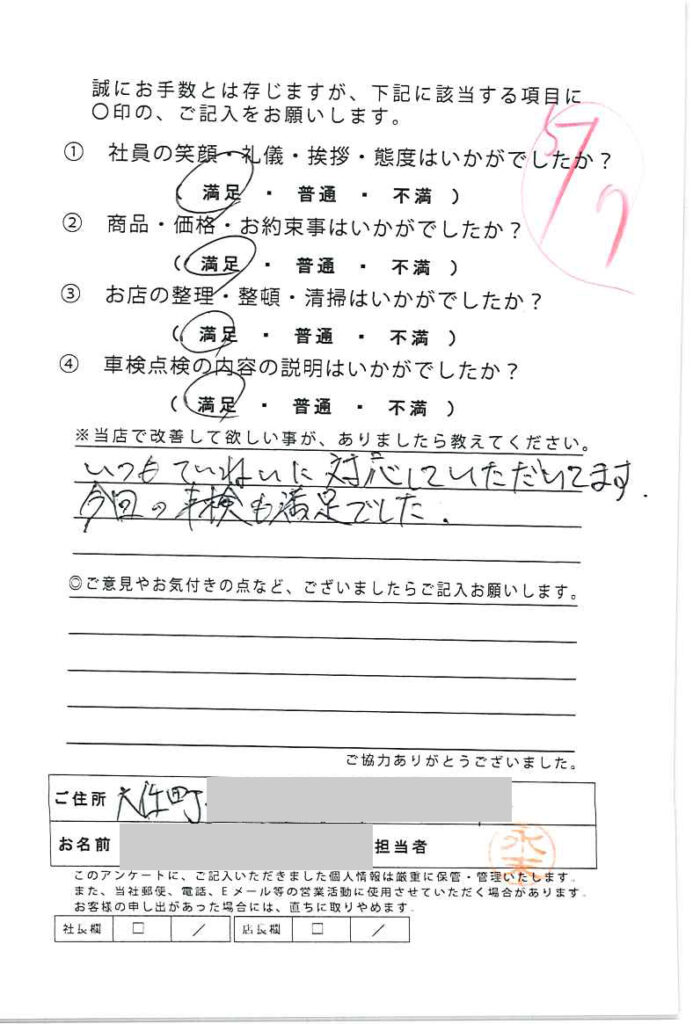 誠にお手数とは存じますが、下記に該当する項目に
〇印の、ご記入をお願いします。
① 社員の笑顔・礼儀・挨拶・態度はいかがでしたか？
( 満足 ・ 普通 ・ 不満 )
② 商品・価格・お約束事はいかがでしたか？
( 満足 ・ 普通 ・ 不満 )
③ お店の整理・整頓・清掃はいかがでしたか？
( 満足 ・ 普通 ・ 不満 )
④ 車検点検の内容の説明はいかがでしたか？
( 満足 ・ 普通 ・ 不満 )
※当店で改善して欲しい事が、ありましたら教えてください。
いつもていねいに対応していただいてます.
今回の車検も満足でした.
◎ご意見やお気付きの点など、ございましたらご記入お願いします。
ご協力ありがとうございました。
ご住所 大住町
お名前 担当者
このアンケートに、ご記入いただきました個人情報は厳重に保管・管理いたします.
また、当社郵便、電話、Eメール等の営業活動に使用させていただく場合があります.
お客様の申し出があった場合には、直ちに取りやめます.
社長欄 □ / 店長欄 □ /